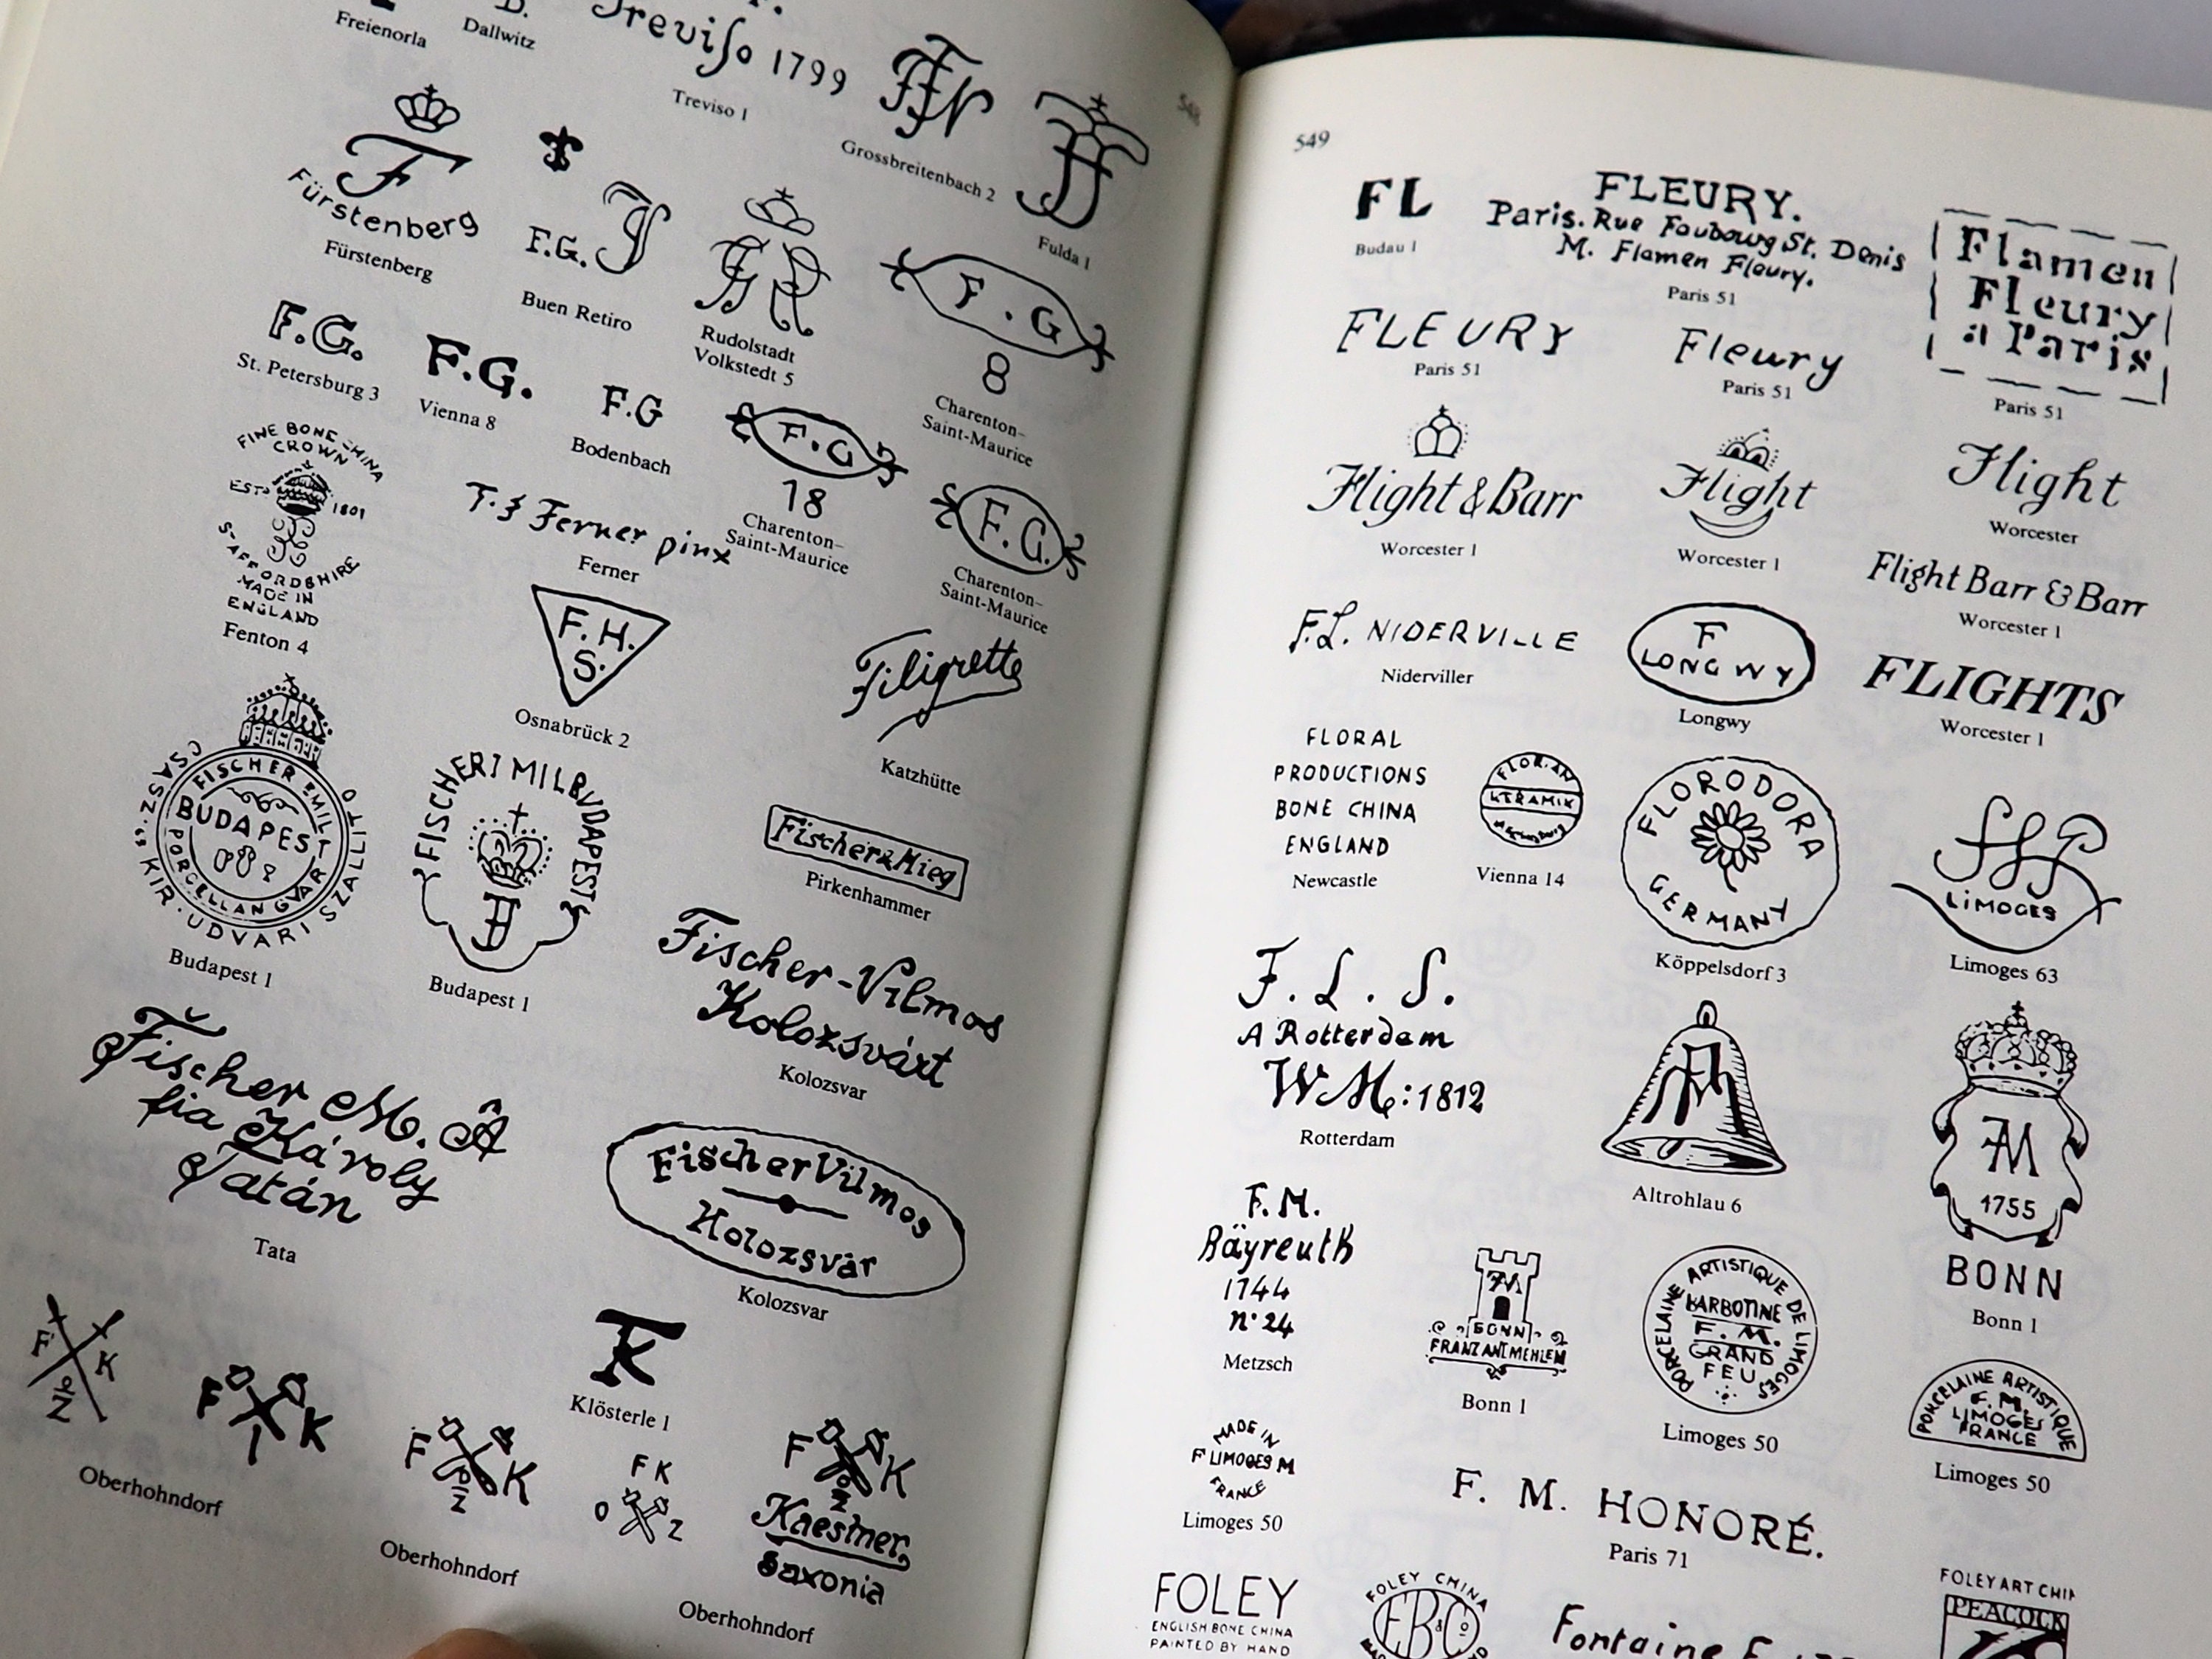 Freienorla
D.
Dallwitz
Treviso 1799
Treviso 1
FN
Grossbreitenbach 2
Fulda 1
548
F
Fürstenberg
Fürstenberg
F.G.
Buen Retiro
Rudolstadt
Volkstedt 5
F.G
8
Charenton–
Saint-Maurice
F.G.
St. Petersburg 3
F.G.
Vienna 8
F.G
Bodenbach
F.G
18
Charenton–
Saint-Maurice
F.G.
Charenton–
Saint-Maurice
FINE BONE CHINA
CROWN
ESTD 1801
STAFFORDSHIRE
MADE IN
ENGLAND
Fenton 4
Ferner pinx
Ferner
F.H.
S.
Osnabrück 2
Filigrette
Katzhütte
FISCHER EMIL
BUDAPEST
PORCELLANGYÁR
CSASZ. és KIR. UDVARI SZÁLLITO
Budapest 1
FISCHER I MIL BUDAPEST
Budapest 1
Fischer & Mieg
Pirkenhammer
Fischer-Vilmos
Kolozsvárt
Kolozsvar
Fischer M. Á
fia Károly
Tatán
Tata
Fischer Vilmos
Kolozsvár
Kolozsvar
FK
Klösterle 1
F K
Z
F K
Oberhohndorf
F K
Z
F K
O Z
Oberhohndorf
F K
Z
Kaestner
Saxonia
Oberhohndorf
549
FL
Budau 1
FLEURY.
Paris. Rue Foubowg St. Denis
M. Flamen Fleury.
Paris 51
Flamen
Fleury
a Paris
Paris 51
FLEURY
Paris 51
Fleury
Paris 51
Flight & Barr
Worcester 1
Flight
Worcester 1
Flight
Worcester
Flight Barr & Barr
Worcester 1
F.L. NIDERVILLE
Niderviller
F
LONGWY
Longwy
FLIGHTS
Worcester 1
FLORAL
PRODUCTIONS
BONE CHINA
ENGLAND
Newcastle
FLORIAN
KERAMIK
Vienna 14
FLORODORA
GERMANY
Köppelsdorf 3
LIMOGES
Limoges 63
F. L. S.
A Rotterdam
WM: 1812
Rotterdam
Altrohlau 6
FM
1755
BONN
Bonn 1
F.M.
Bäyreuth
1744
n° 24
Metzsch
FM
BONN
FRANZ ANT MEHLEM
Bonn 1
PORCELAINE ARTISTIQUE DE LIMOGES
BARBOTINE
F. M.
GRAND
FEU
Limoges 50
PORCELAINE ARTISTIQUE
F.M.
LIMOGES
FRANCE
Limoges 50
MADE IN
F LIMOGES M
FRANCE
Limoges 50
F. M. HONORÉ.
Paris 71
FOLEY
ENGLISH BONE CHINA
PAINTED BY HAND
FOLEY CHINA
EB & Co
Fontaine
FOLEY ART CHIN
PEACOCK